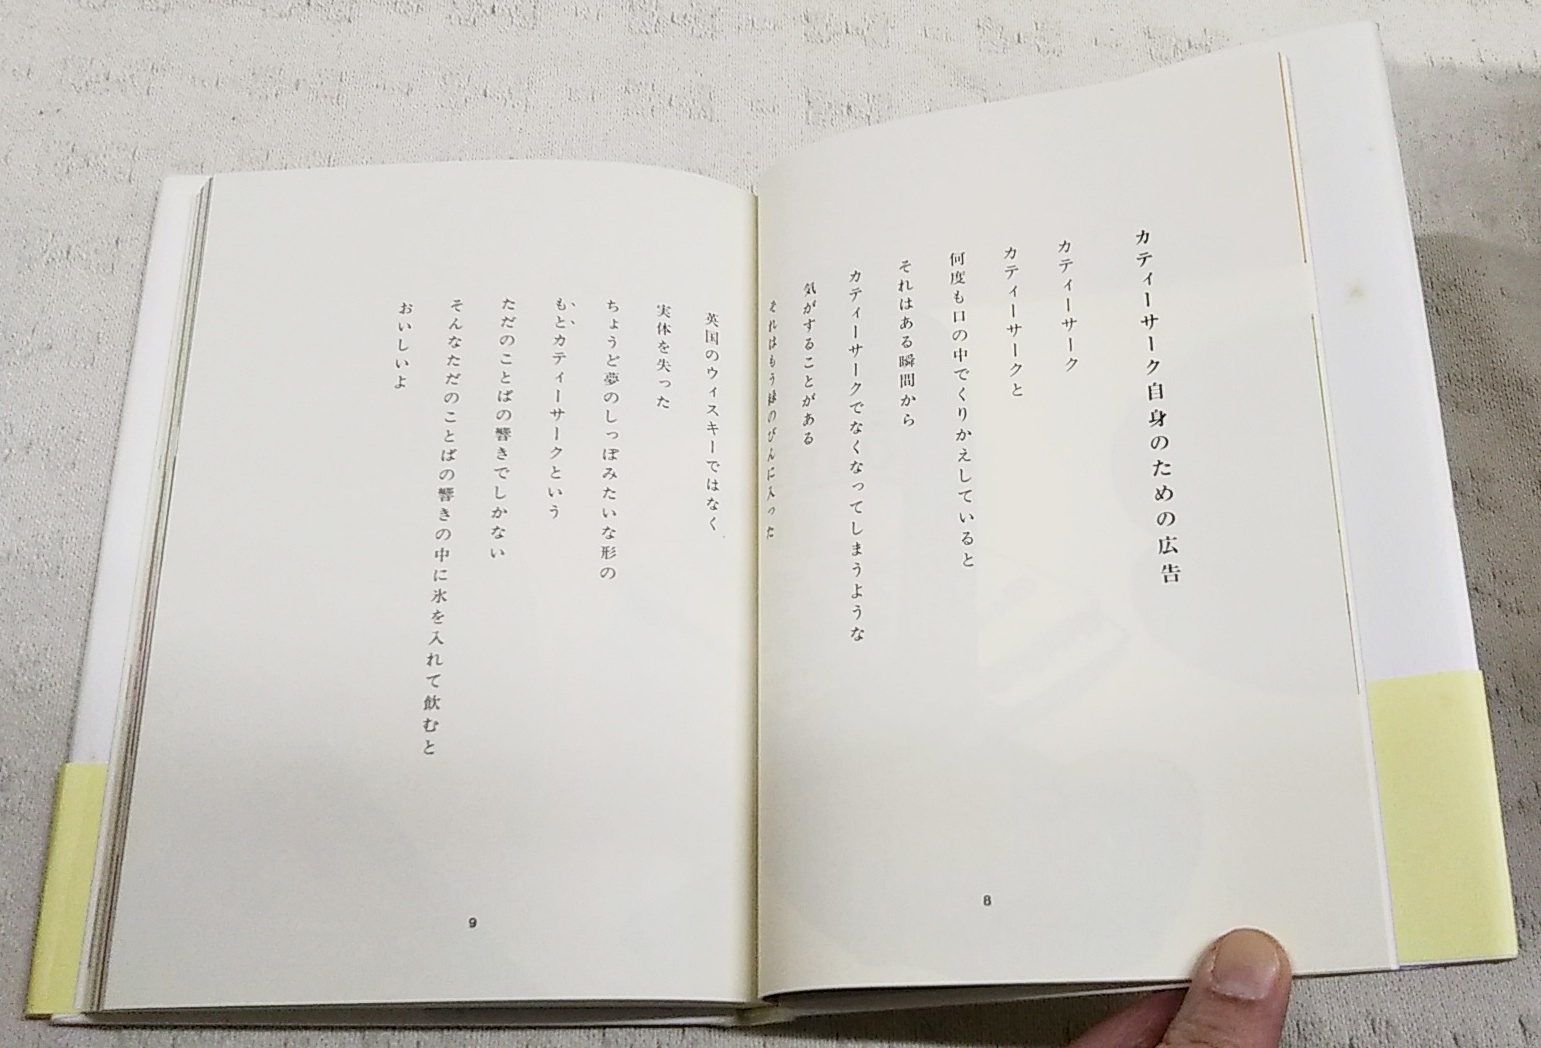 カティーサーク自身のための広告
カティーサーク
カティーサークと
何度も口の中でくりかえしていると
それはある瞬間から
カティーサークでなくなってしまうような
気がすることがある
それはもう緑のびんに入った
8
英国のウィスキーではなく
実体を失った
ちょうど夢のしっぽみたいな形の
もとカティーサークという
ただのことばの響きでしかない
そんなただのことばの響きの中に氷を入れて飲むと
おいしいよ
9